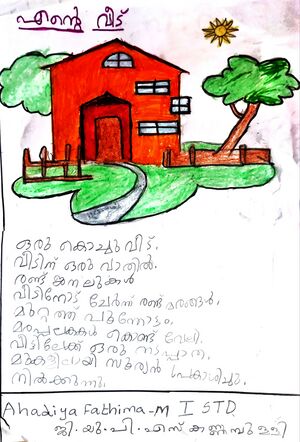 എന്റെ വീട്
ഒരു കൊച്ചു വീട്.
വീടിന് ഒരു വാതിൽ.
രണ്ട് ജനലുകൾ
വീടിനോട് ചേർന്ന് രണ്ട് മരങ്ങൾ.
മുറ്റത്ത് പൂന്തോട്ടം.
മരപ്പലകകൾ കൊണ്ട് വേലി.
വീട്ടിലേക്ക് ഒരു നടപ്പാത.
മുകളിലായി സൂര്യൻ പ്രകാശിച്ചു
നിൽക്കുന്നു.
Ahadiya Fathima-M I STD
ജി.യു.പി.എസ് കണ്ണമ്പുള്ളി